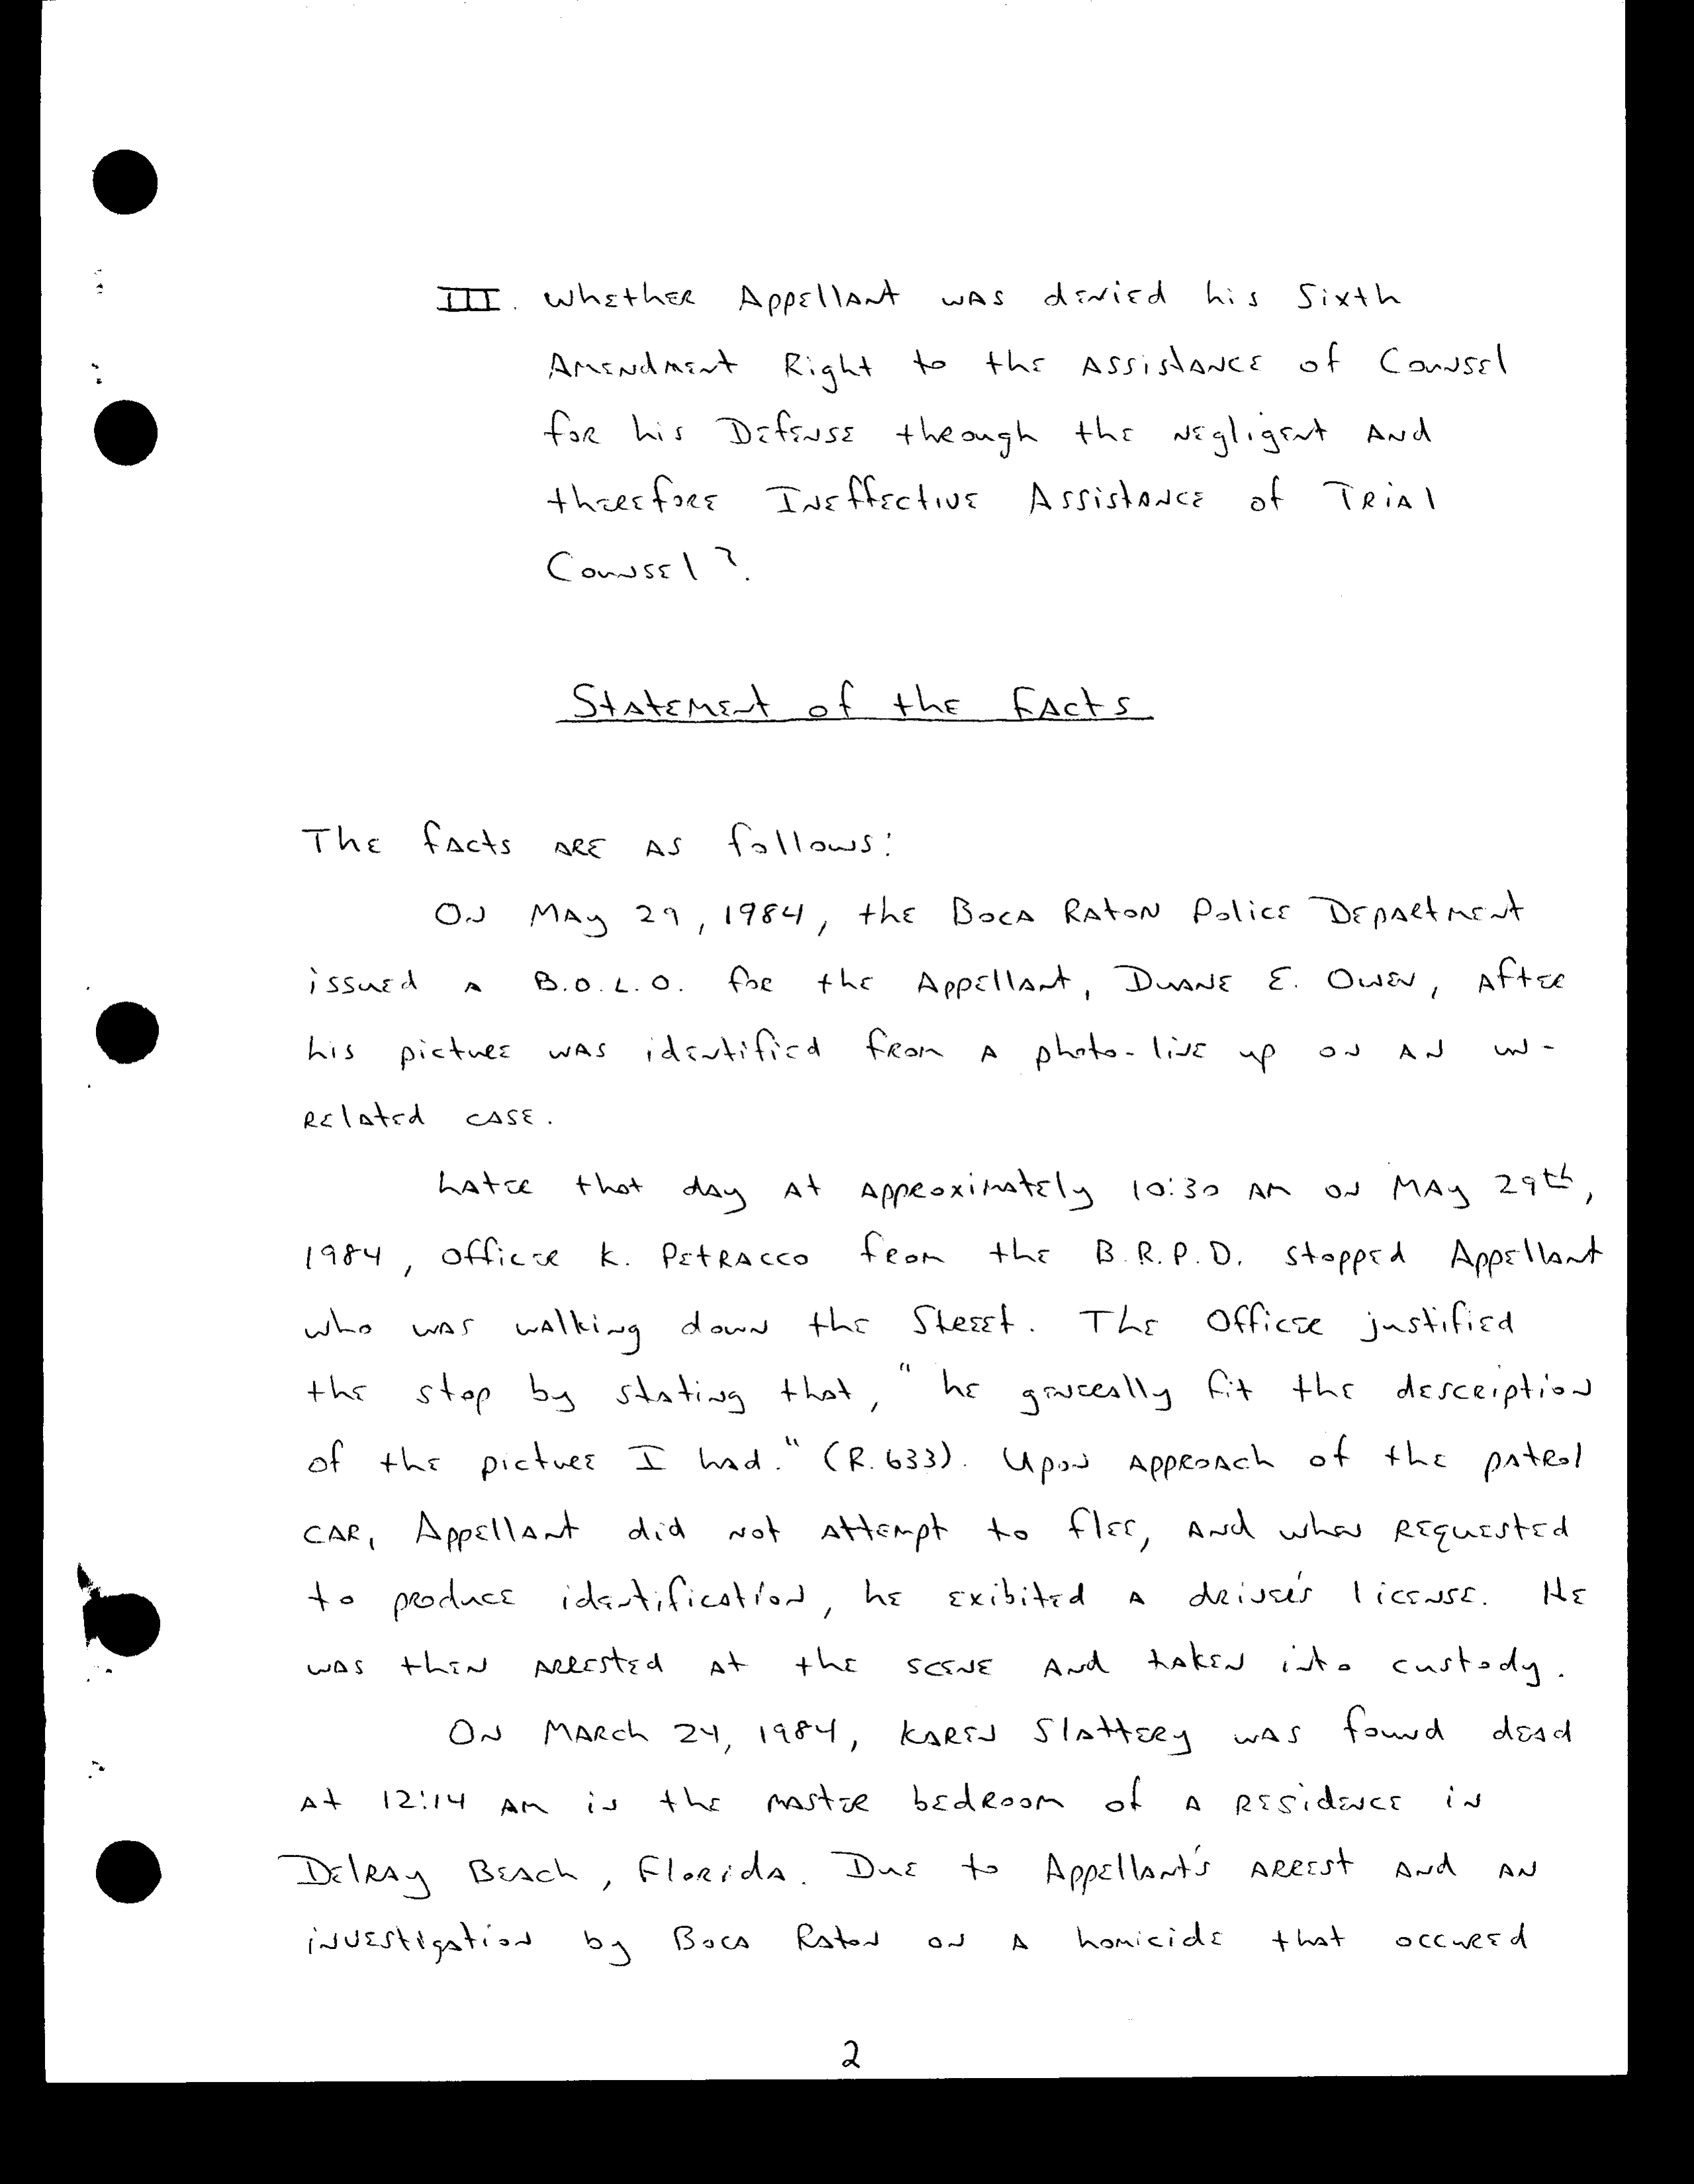 III. Whether Appellant was denied his Sixth
Amendment Right to the Assistance of Counsel
for his Defense through the negligent and
therefore Ineffective Assistance of Trial
Counsel?
Statement of the Facts
The facts are as follows:
On May 29, 1984, the Boca Raton Police Department
issued a B.O.L.O. for the Appellant, Duane E. Owen, after
his picture was identified from a photo-line up on an un-
related case.
Later that day at approximately 10:30 AM on May 29th,
1984, officer K. Petracco from the B.R.P.D. stopped Appellant
who was walking down the Street. The Officer justified
the stop by stating that, "he generally fit the description
of the picture I had." (R.633). Upon approach of the patrol
car, Appellant did not attempt to flee, and when requested
to produce identification, he exibited a driver's license. He
was then arrested at the scene and taken into custody.
On March 24, 1984, Karen Slattery was found dead
at 12:14 AM in the master bedroom of a residence in
Delray Beach, Florida. Due to Appellant's arrest and an
investigation by Boca Raton on a homicide that occured
2